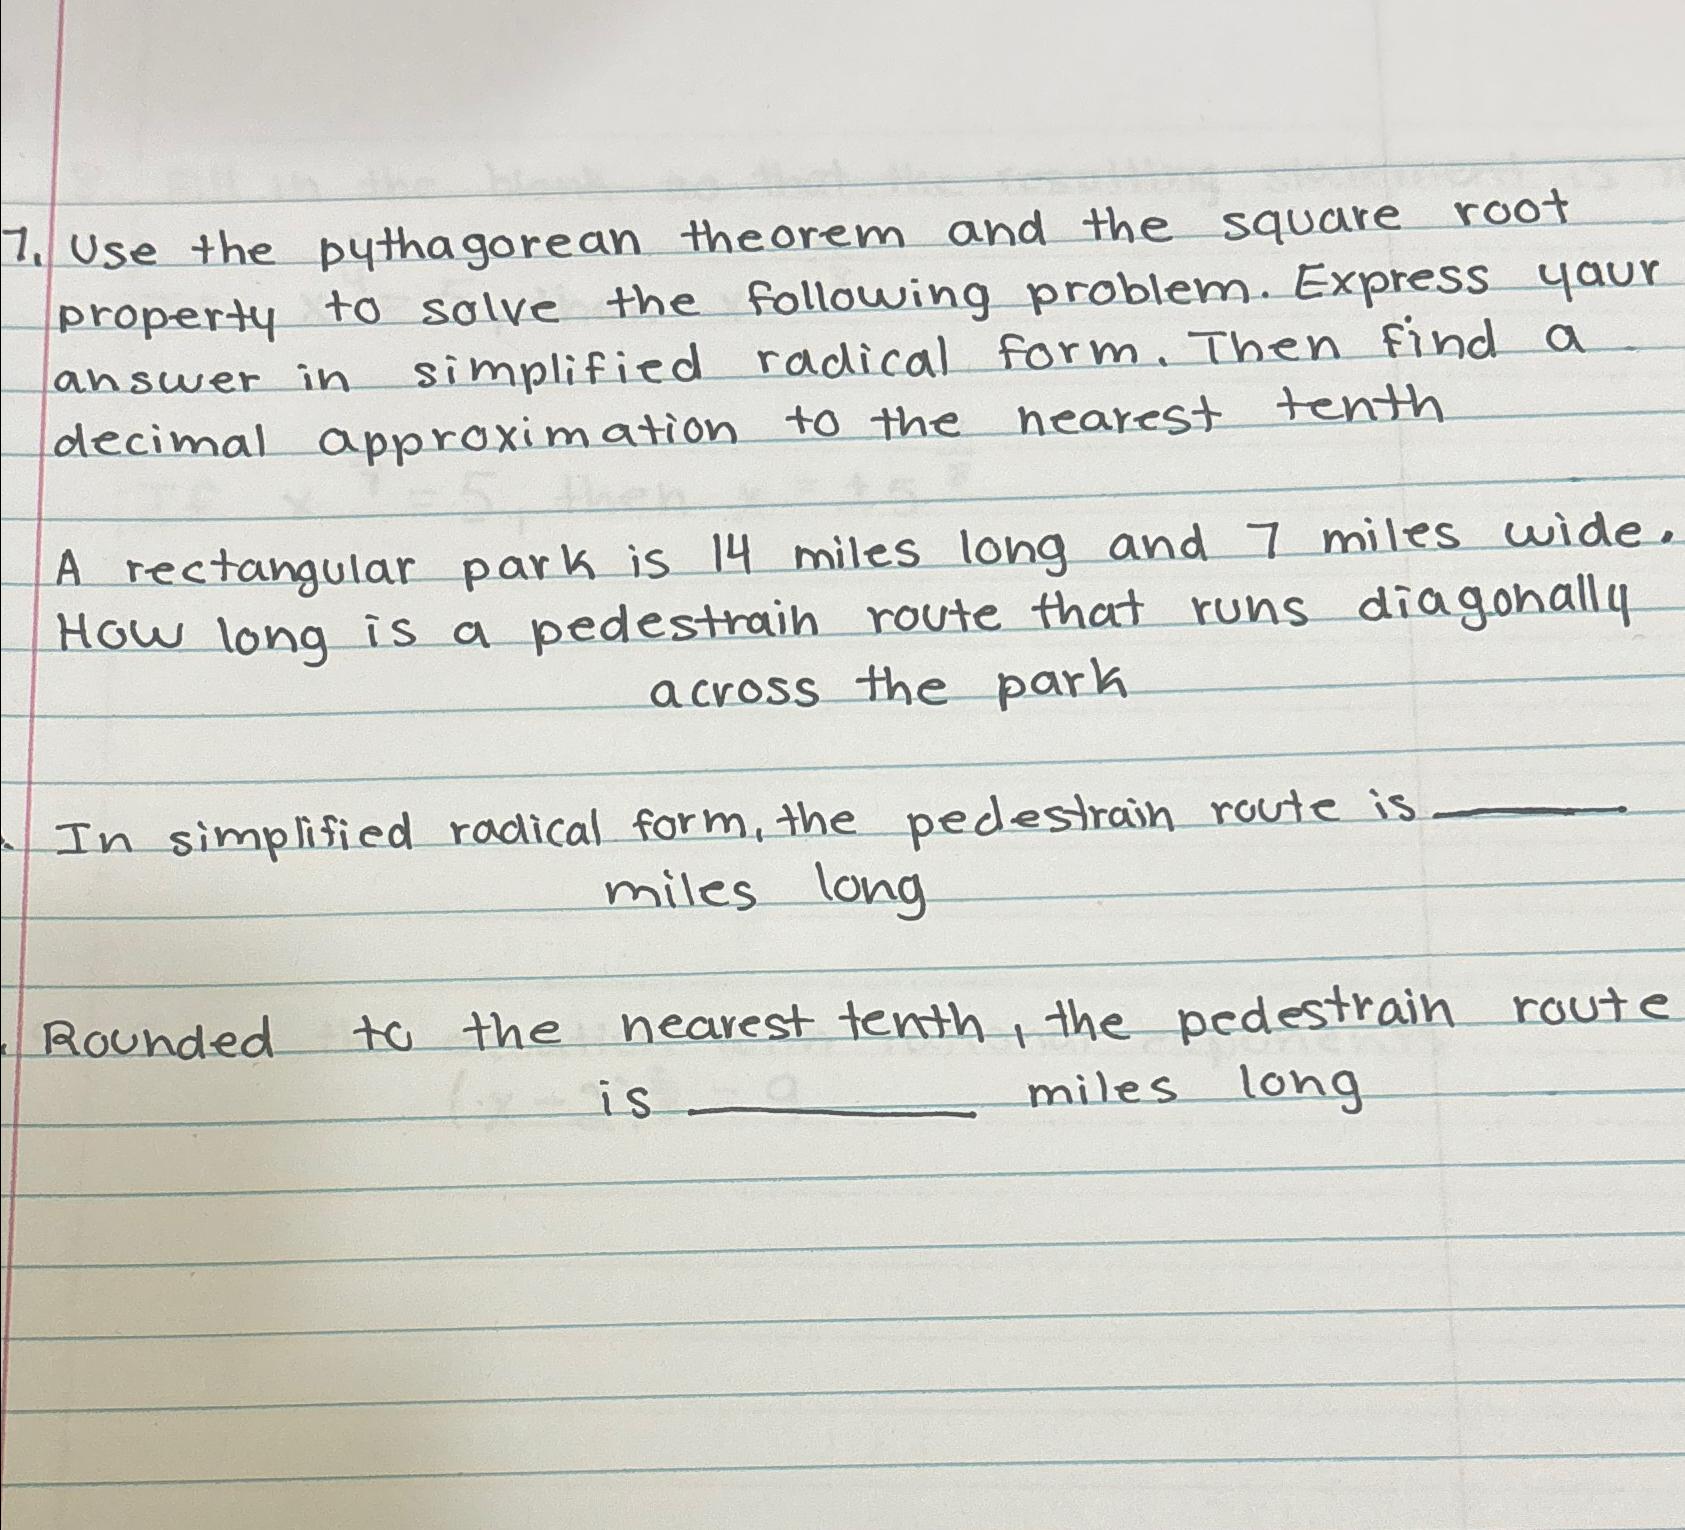 7. Use the pythagorean theorem and the square root
property to solve the following problem. Express your
answer in simplified radical form. Then find a
decimal approximation to the nearest tenth
A rectangular park is 14 miles long and 7 miles wide.
How long is a pedestrain route that runs diagonally
across the park
In simplified radical form, the pedestrain route is ______
miles long
Rounded to the nearest tenth, the pedestrain route
is ______ miles long